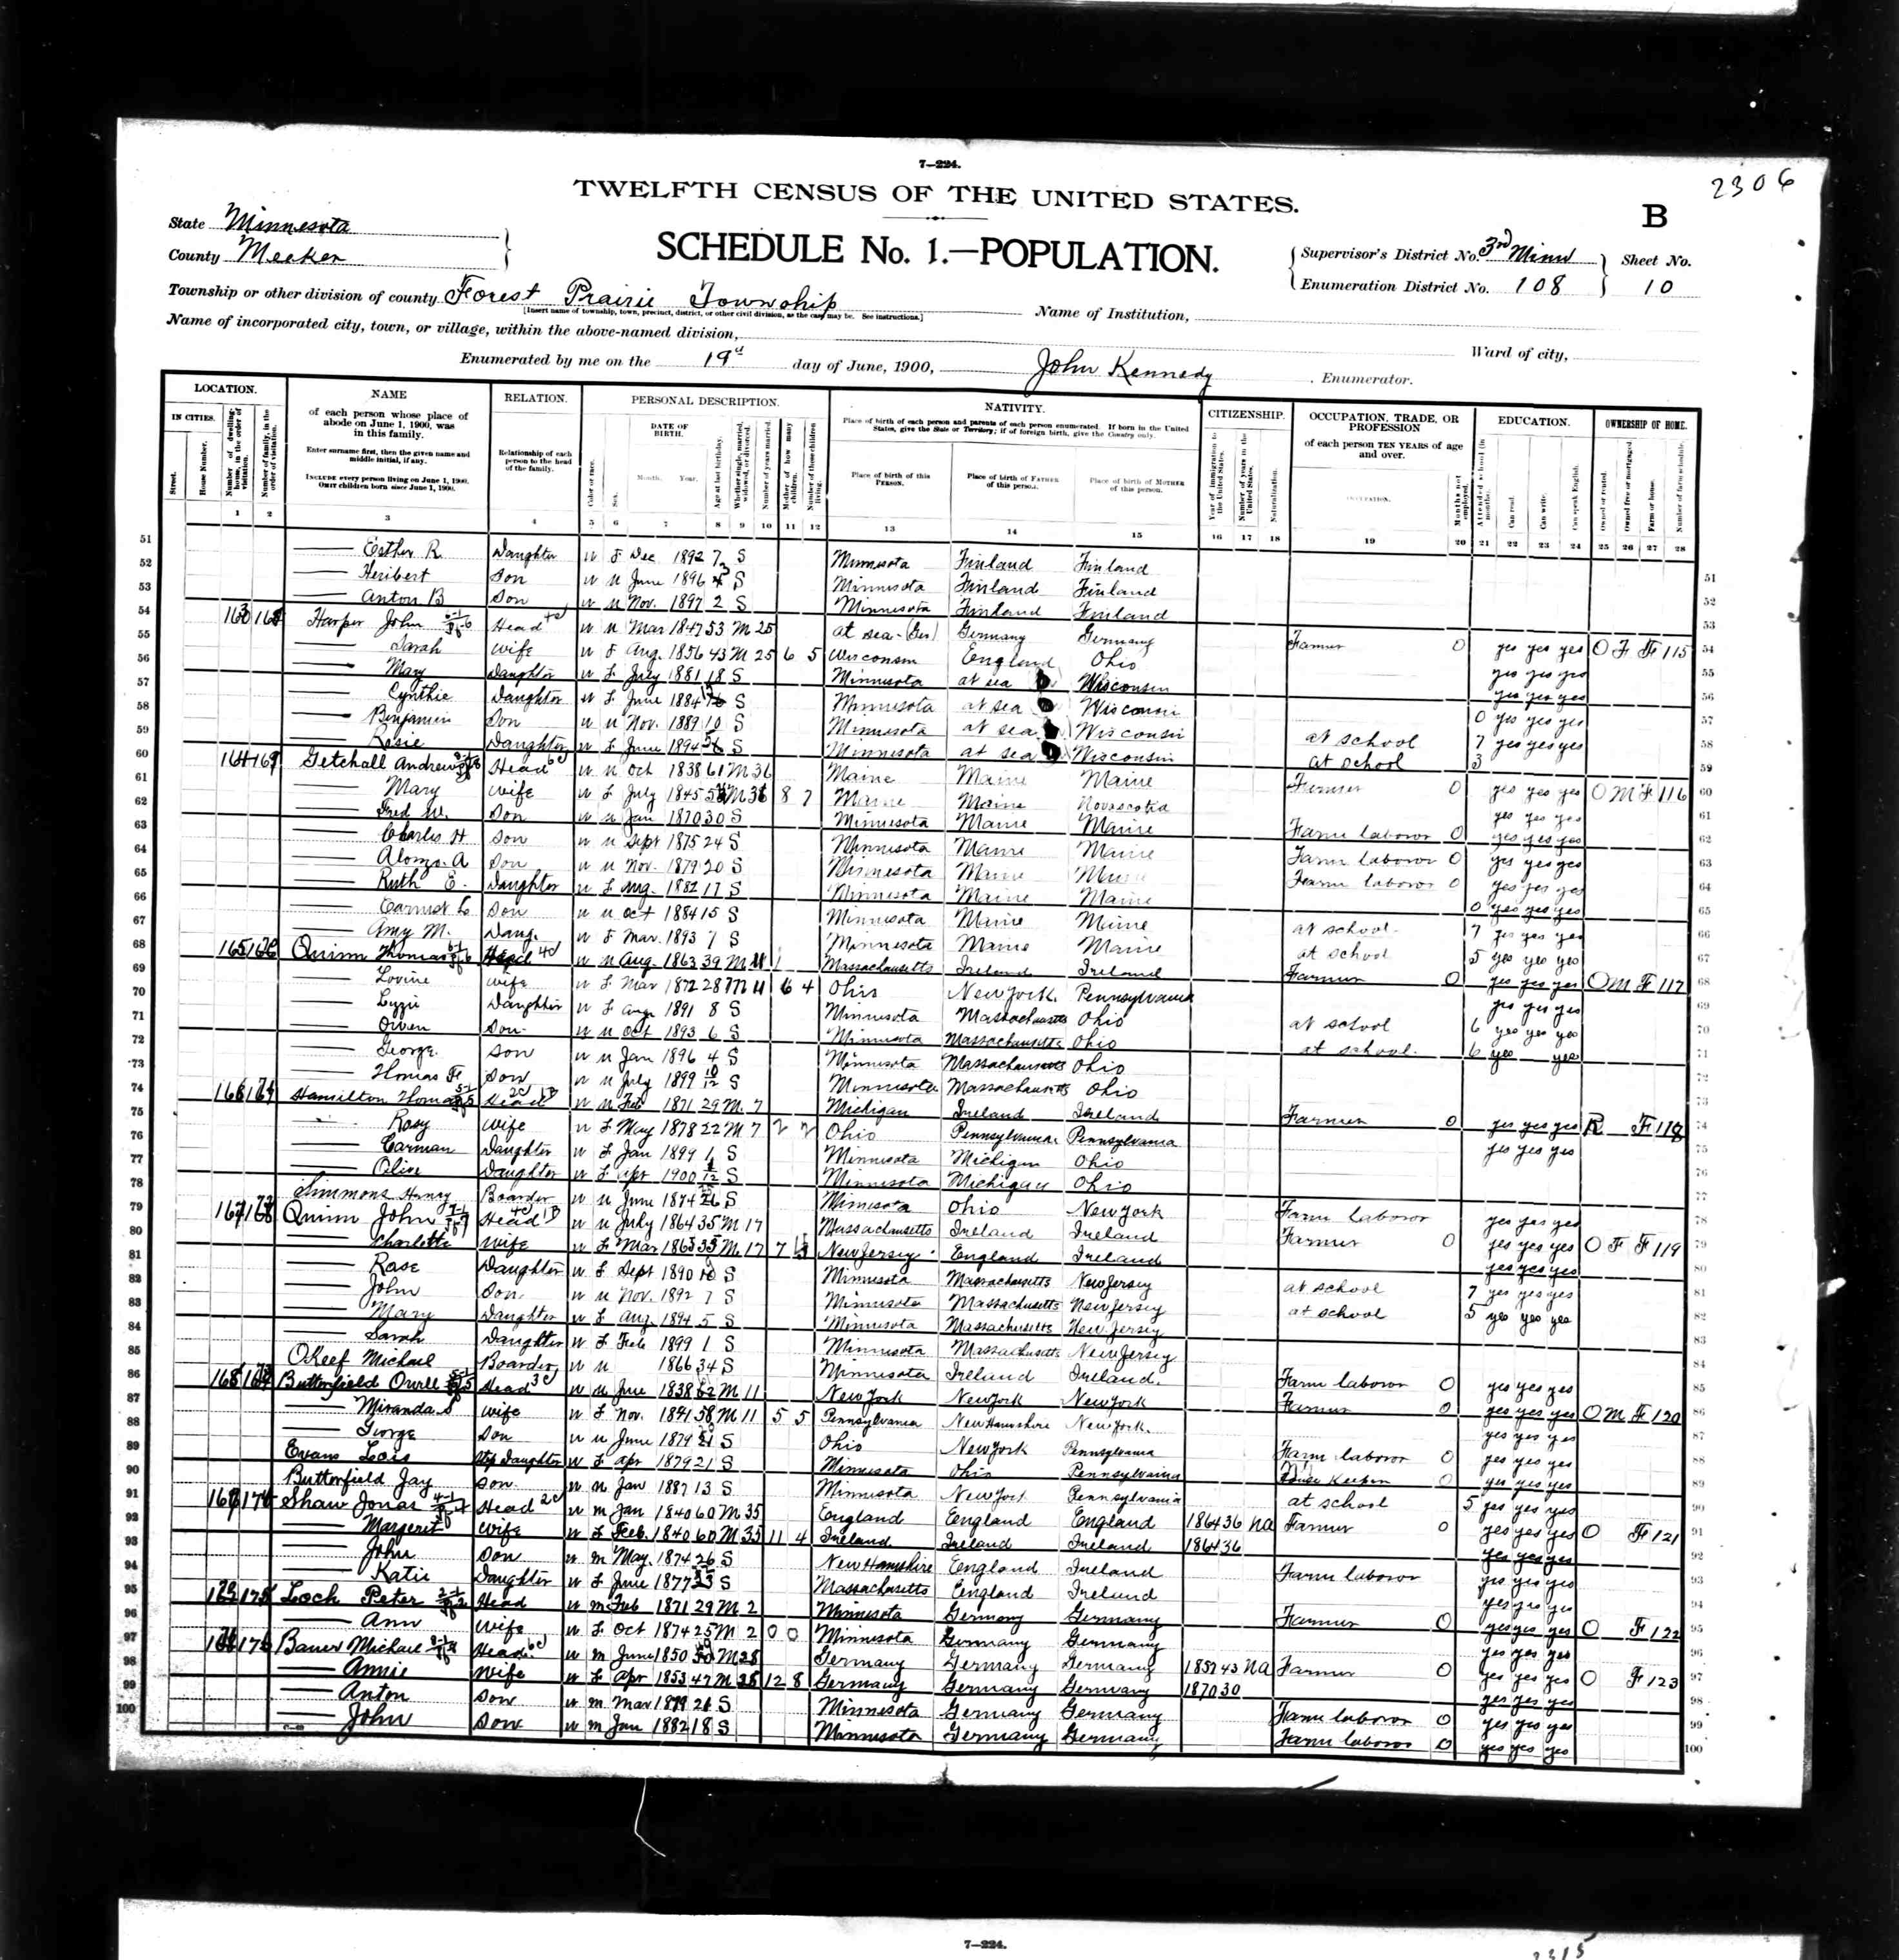 7—224.
2306
TWELFTH CENSUS OF THE UNITED STATES.
B
State Minnesota
County Meeker
SCHEDULE No. 1.—POPULATION.
Supervisor's District No. 3rd Minn
Sheet No.
Enumeration District No. 108
10
Township or other division of county Forest Prairie Township
[Insert name of township, town, precinct, district, or other civil division, as the case may be. See instructions.]
Name of Institution,
Name of incorporated city, town, or village, within the above-named division,
Ward of city,
Enumerated by me on the 19 day of June, 1900, John Kennedy, Enumerator.
LOCATION. NAME RELATION. PERSONAL DESCRIPTION. NATIVITY. CITIZENSHIP. OCCUPATION, TRADE, OR PROFESSION EDUCATION. OWNERSHIP OF HOME.
IN CITIES. of each person whose place of abode on June 1, 1900, was in this family. DATE OF BIRTH. Place of birth of each person and parents of each person enumerated. If born in the United States, give the State or Territory; if of foreign birth, give the Country only. of each person TEN YEARS of age and over.
Street. House Number. Number of dwelling-house, in the order of visitation. Number of family, in the order of visitation. Enter surname first, then the given name and middle initial, if any. Relationship of each person to the head of the family. Color or race. Sex. Month. Year. Age at last birthday. Whether single, married, widowed, or divorced. Number of years married. Mother of how many children. Number of these children living. Place of birth of this PERSON. Place of birth of FATHER of this person. Place of birth of MOTHER of this person. Year of immigration to the United States. Number of years in the United States. Naturalization. OCCUPATION. Months not employed. Attended school (in months). Can read. Can write. Can speak English. Owned or rented. Owned free or mortgaged. Farm or house. Number of farm schedule.
INCLUDE every person living on June 1, 1900. OMIT children born since June 1, 1900.
1 2 3 4 5 6 7 8 9 10 11 12 13 14 15 16 17 18 19 20 21 22 23 24 25 26 27 28
51 Esther R Daughter W F Dec 1892 7 S Minnesota Finland Finland
52 Heribert Son W M June 1896 S Minnesota Finland Finland
53 Anton B Son W M Nov. 1897 2 S Minnesota Finland Finland
54 163 Harper John Head W M Mar 1847 53 M 25 at sea (Ger) Germany Germany Farmer 0 yes yes yes O F F 115
55 Sarah Wife W F Aug. 1856 43 M 25 6 5 Wisconsin England Ohio yes yes yes
56 Mary Daughter W F July 1881 18 S Minnesota at sea Wisconsin yes yes yes
57 Cynthie Daughter W F June 1884 S Minnesota at sea Wisconsin 0 yes yes yes
58 Benjamin Son W M Nov. 1889 10 S Minnesota at sea Wisconsin at school 7 yes yes yes
59 Rosie Daughter W F June 1894 S Minnesota at sea Wisconsin at school 3
60 164 169 Getchall Andrew Head W M Oct 1838 61 M 36 Maine Maine Maine Farmer 0 yes yes yes O M F 116
61 Mary Wife W F July 1845 M 36 8 7 Maine Maine Novascotia yes yes yes
62 Fred W. Son W M Jan 1870 30 S Minnesota Maine Maine Farm laboror 0 yes yes yes
63 Charles H Son W M Sept 1875 24 S Minnesota Maine Maine Farm laboror 0 yes yes yes
64 Alonzo A Son W M Nov. 1879 20 S Minnesota Maine Maine Farm laboror 0 yes yes yes
65 Ruth E. Daughter W F Aug. 1882 17 S Minnesota Maine Maine 0 yes yes yes
66 Earnest L Son W M Oct 1884 15 S Minnesota Maine Maine at school 7 yes yes yes
67 Amy M. Daug. W F Mar. 1893 7 S Minnesota Maine Maine at school 5 yes yes yes
68 165 Quinn Thomas Head W M Aug. 1863 39 M 11 Massachusetts Ireland Ireland Farmer 0 yes yes yes O M F 117
69 Lovine Wife W F Mar 1872 28 M 11 6 4 Ohio New York Pennsylvania yes yes yes
70 Lyzzie Daughter W F Aug 1891 8 S Minnesota Massachusetts Ohio at school 6 yes yes yes
71 Owen Son W M Oct 1893 6 S Minnesota Massachusetts Ohio at school 6 yes yes
72 George Son W M Jan 1896 4 S Minnesota Massachusetts Ohio
73 Thomas F Son W M July 1899 10/12 S Minnesota Massachusetts Ohio
74 166 Hamilton Thomas Head W M Feb 1871 29 M 7 Michigan Ireland Ireland Farmer 0 yes yes yes R F 118
75 Rosy Wife W F May 1878 22 M 7 2 2 Ohio Pennsylvania Pennsylvania yes yes yes
76 Carman Daughter W F Jan 1899 1 S Minnesota Michigan Ohio
77 Olive Daughter W F Apr 1900 1/12 S Minnesota Michigan Ohio
78 Simmons Henry Boarder W M June 1874 S Minnesota Ohio New York Farm laboror yes yes yes
79 167 Quinn John Head W M July 1864 35 M 17 Massachusetts Ireland Ireland Farmer 0 yes yes yes O F F 119
80 Charlotte Wife W F Mar 1865 35 M 17 7 New Jersey England Ireland yes yes yes
81 Rose Daughter W F Sept 1890 S Minnesota Massachusetts New Jersey at school 7 yes yes yes
82 John Son W M Nov. 1892 7 S Minnesota Massachusetts New Jersey at school 5 yes yes yes
83 Mary Daughter W F Aug. 1894 5 S Minnesota Massachusetts New Jersey
84 Sarah Daughter W F Feb 1899 1 S Minnesota Massachusetts New Jersey
85 OKeef Michael Boarder W M 1866 34 S Minnesota Ireland Ireland Farm laboror 0 yes yes yes
86 168 Butterfield Head W M June 1838 62 M 11 New York New York New York Farmer 0 yes yes yes O M F 120
87 Miranda S Wife W F Nov. 1841 58 M 11 5 5 Pennsylvania New Hampshire New York yes yes yes
88 George Son W M June 1879 S Ohio New York Pennsylvania Farm laboror 0 yes yes yes
89 Evans Lois Step Daughter W F Apr 1879 21 S Minnesota Ohio Pennsylvania House Keeper 0 yes yes yes
90 Butterfield Jay Son W M Jan 1887 13 S Minnesota New York Pennsylvania at school 5 yes yes yes
91 174 Shaw Jonas Head W M Jan 1840 60 M 35 England England England 1864 36 Na Farmer 0 yes yes yes O F 121
92 Margerit Wife W F Feb. 1840 60 M 35 11 4 Ireland Ireland Ireland 1864 36 yes yes yes
93 John Son W M May. 1874 26 S New Hamshire England Ireland Farm laboror yes yes yes
94 Katie Daughter W F June 1877 S Massachusetts England Ireland yes yes yes
95 175 Loch Peter Head W M Feb 1871 29 M 2 Minnesota Germany Germany Farmer 0 yes yes yes O F 122
96 Ann Wife W F Oct 1874 25 M 2 0 0 Minnesota Germany Germany yes yes yes
97 176 Bauer Michael Head W M June 1850 M 28 Germany Germany Germany 1857 43 Na Farmer 0 yes yes yes O F 123
98 Annie Wife W F Apr 1853 47 M 28 12 8 Germany Germany Germany 1870 30 yes yes yes
99 Anton Son W M Mar 1879 21 S Minnesota Germany Germany Farm laboror 0 yes yes yes
100 John Son W M Jan 1882 18 S Minnesota Germany Germany Farm laboror 0 yes yes yes
7—224.